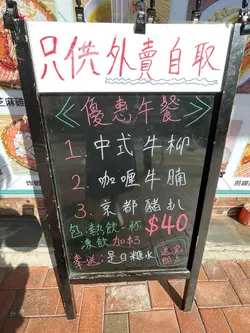 只供外賣自取
<優惠午餐>
1. 中式牛柳
2. 咖喱牛腩
3. 京都豬扒
包:熱飲一杯
凍飲加$3
$40
送:是日糖水
芝麻雞